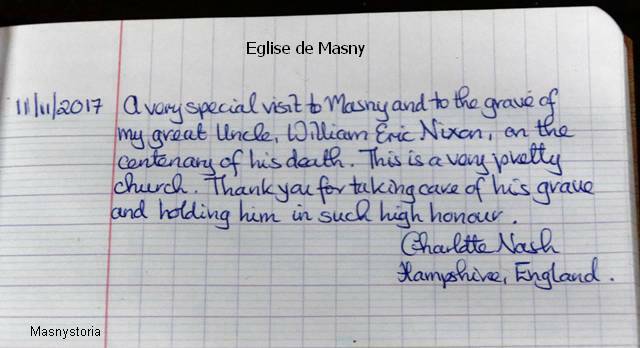 Eglise de Masny
11/11/2017 A very special visit to Masny and to the grave of
my great Uncle, William Eric Nixon, on the
centenary of his death. This is a very pretty
church. Thank you for taking care of his grave
and holding him in such high honour.
Charlotte Nash
Hampshire, England.
Masnystoria